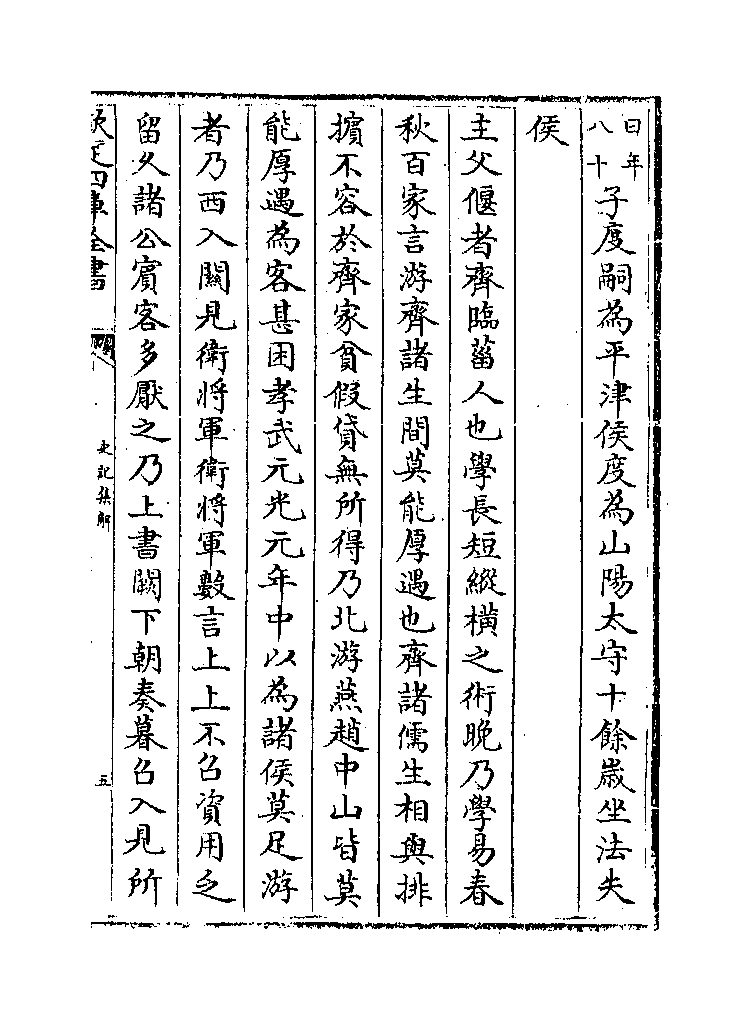 曰年八十子度嗣為平津侯度為山陽太守十餘嵗坐法失
侯
主父偃者齊臨菑人也學長短縱橫之術晩乃學易春
秋百家言游齊諸生間莫能厚遇也齊諸儒生相與排
擯不容於齊家貧假貸無所得乃北游燕趙中山皆莫
能厚遇為客甚困孝武元光元年中以為諸侯莫足游
者乃西入闗見衛將軍衛將軍數言上上不召資用乏
留久諸公賓客多厭之乃上書闕下朝奏暮召入見所
欽定四庫全書
史記集解
五